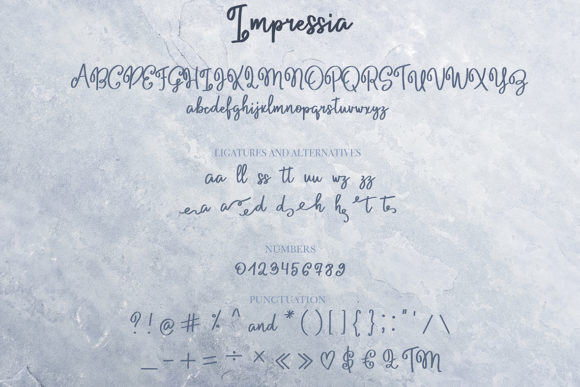 Impressia
ABCDEFGHIJKLMNOPQRSTUVWXYZ
abcdefghijklmnopqrstuvwxyz
LIGATURES AND ALTERNATIVES
aa ll ss tt uu wz zz
a a d d h h t t
NUMBERS
0123456789
PUNCTUATION
? ! @ # % ^ and * ( ) [ ] { } ; : " ' / \
_ - + = ÷ × « » ♡ $ € £ TM